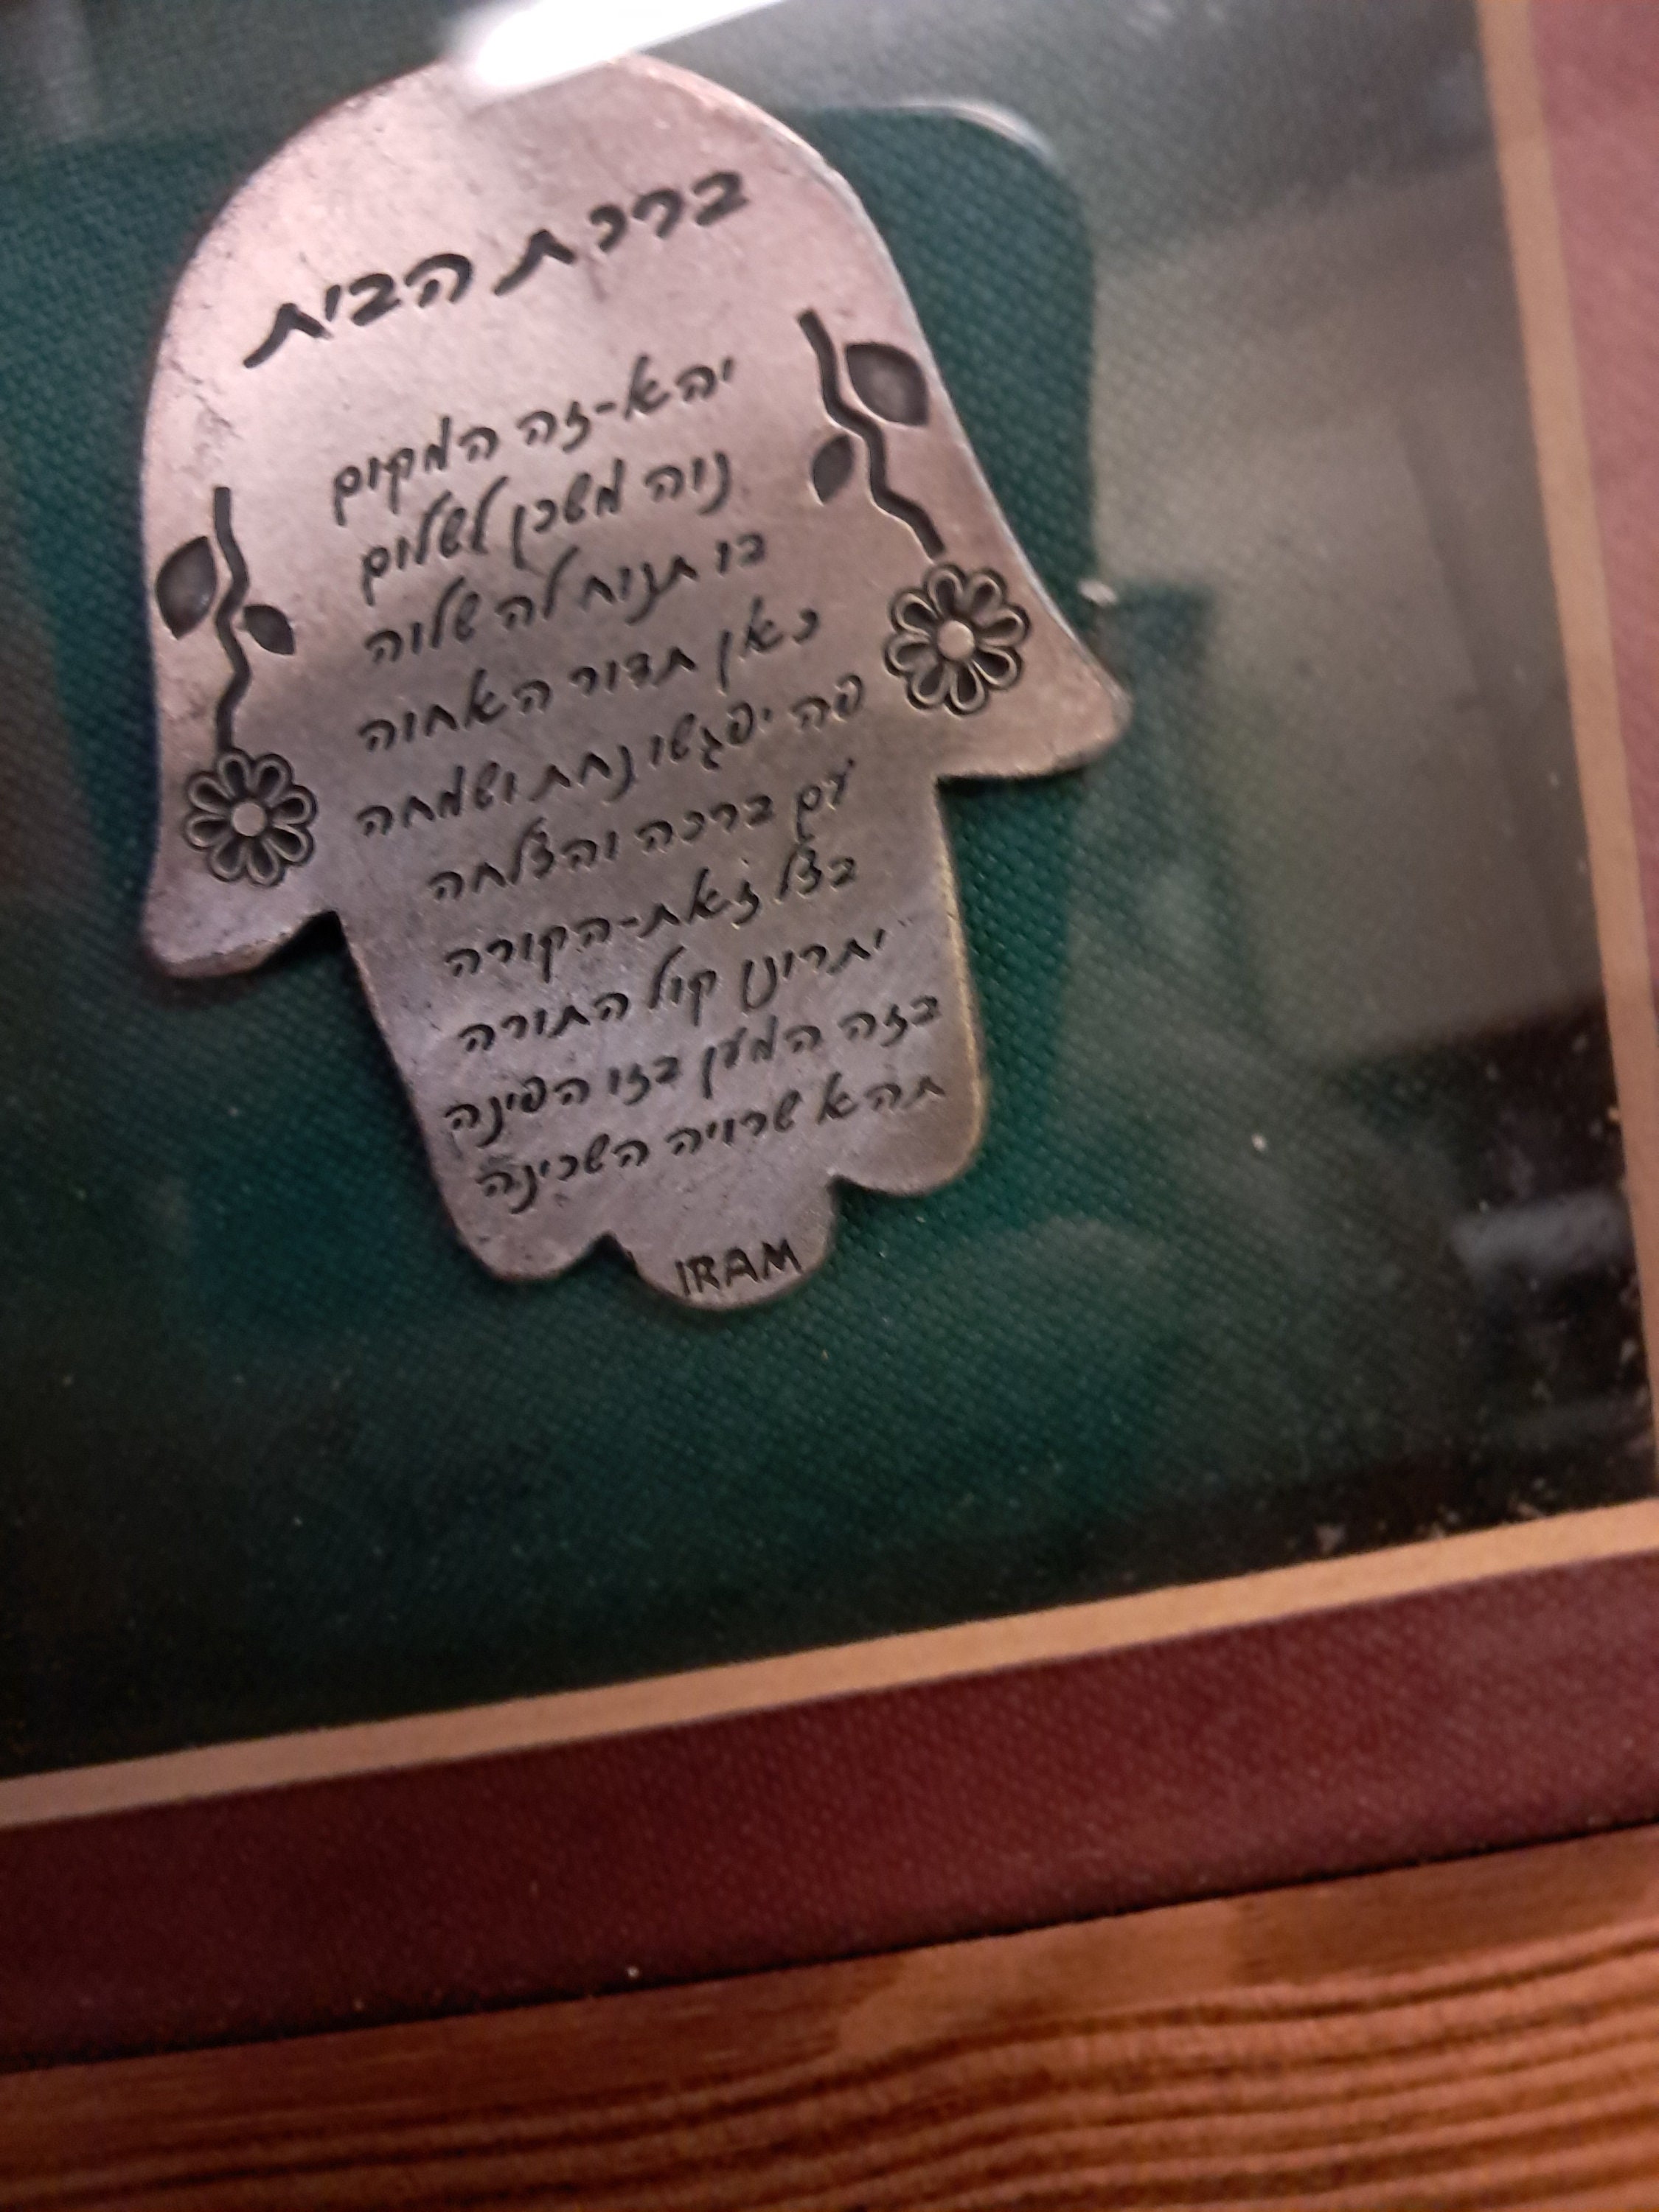 ברכת הבית
יהא-זה המקום
נוה משכן לשלום
בו תנוח לה שלוה
כאן תדור האחוה
פה יפגשו נחת ושמחה
עם ברכה והצלחה
בצל זאת-הקורה
יתרונן קול התורה
בזה המען בזו הפינה
תהא שרויה השכינה
IRAM